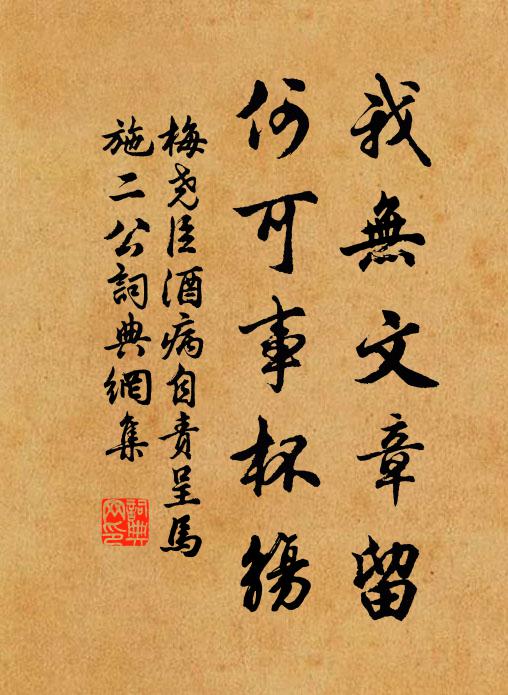 我無文章留
何可事杯觴
梅堯臣酒病自責呈馬
施二公詞典網集
詞典
网印